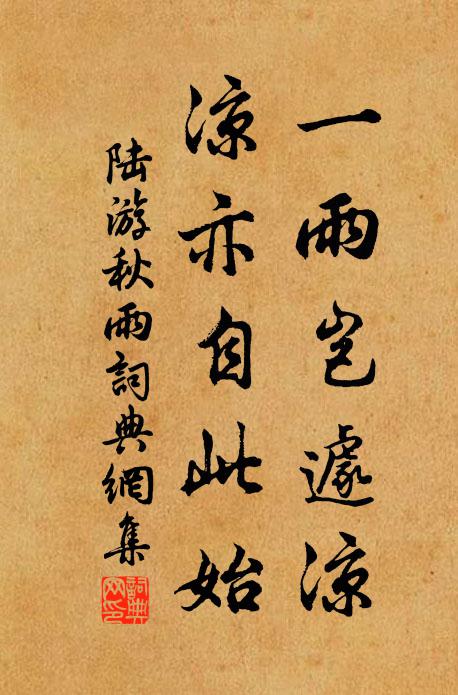 一雨岂遽凉
凉亦自此始
陆游秋雨詞典網集
詞典网印